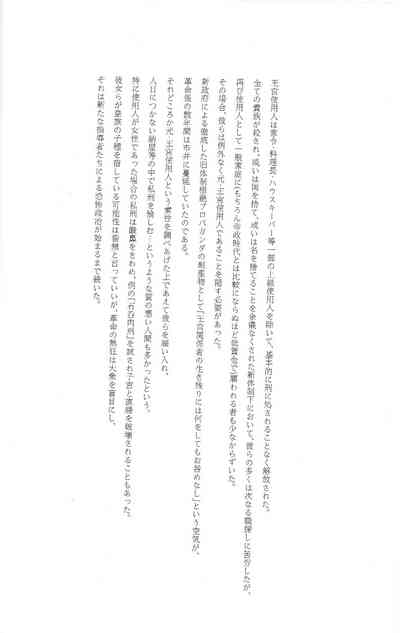 王宮使用人は家令・料理長・ハウスキーパー等一部の上級使用人を除いて、基本的に刑に処されることなく解放された。
全ての貴族が殺され、或いは国を捨て、或いは名を捨てることを余儀なくされた新体制下において、彼らの多くは次なる職探しに苦労したが、
再び使用人として一般家庭に(もちろん帝政時代とは比較にならぬほど低賃金で)雇われる者も少なからずいた。
その場合、彼らは例外なく元・王宮使用人であることを隠す必要があった。
新政府による徹底した旧体制根絶プロパガンダの副産物として「王宮関係者の生き残りには何をしてもお咎めなし」という空気が、
革命後の数年間は市井に蔓延していたのである。
それどころか元・王宮使用人という素性を調べあげた上であえて彼らを雇い入れ、
人目につかない納屋等の中で私刑を愉しむ…というような質の悪い人間も多かったという。
特に使用人が女性であった場合の私刑は を きわめ、例の「石召肉刑」を試され子宮と直腸を破壊されることもあった。
彼女らが皇族の子種を宿している可能性は皆無と言っていいが、革命の熱狂は大衆を盲目にし、
それは新たな指導者たちによる恐怖政治が始まるまで続いた。